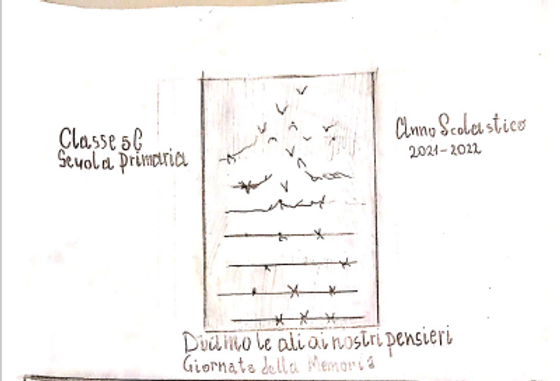 Classe 5C
Scuola primaria
Anno Scolastico
2021-2022
Diamo le ali ai nostri pensieri
Giornata della Memoria